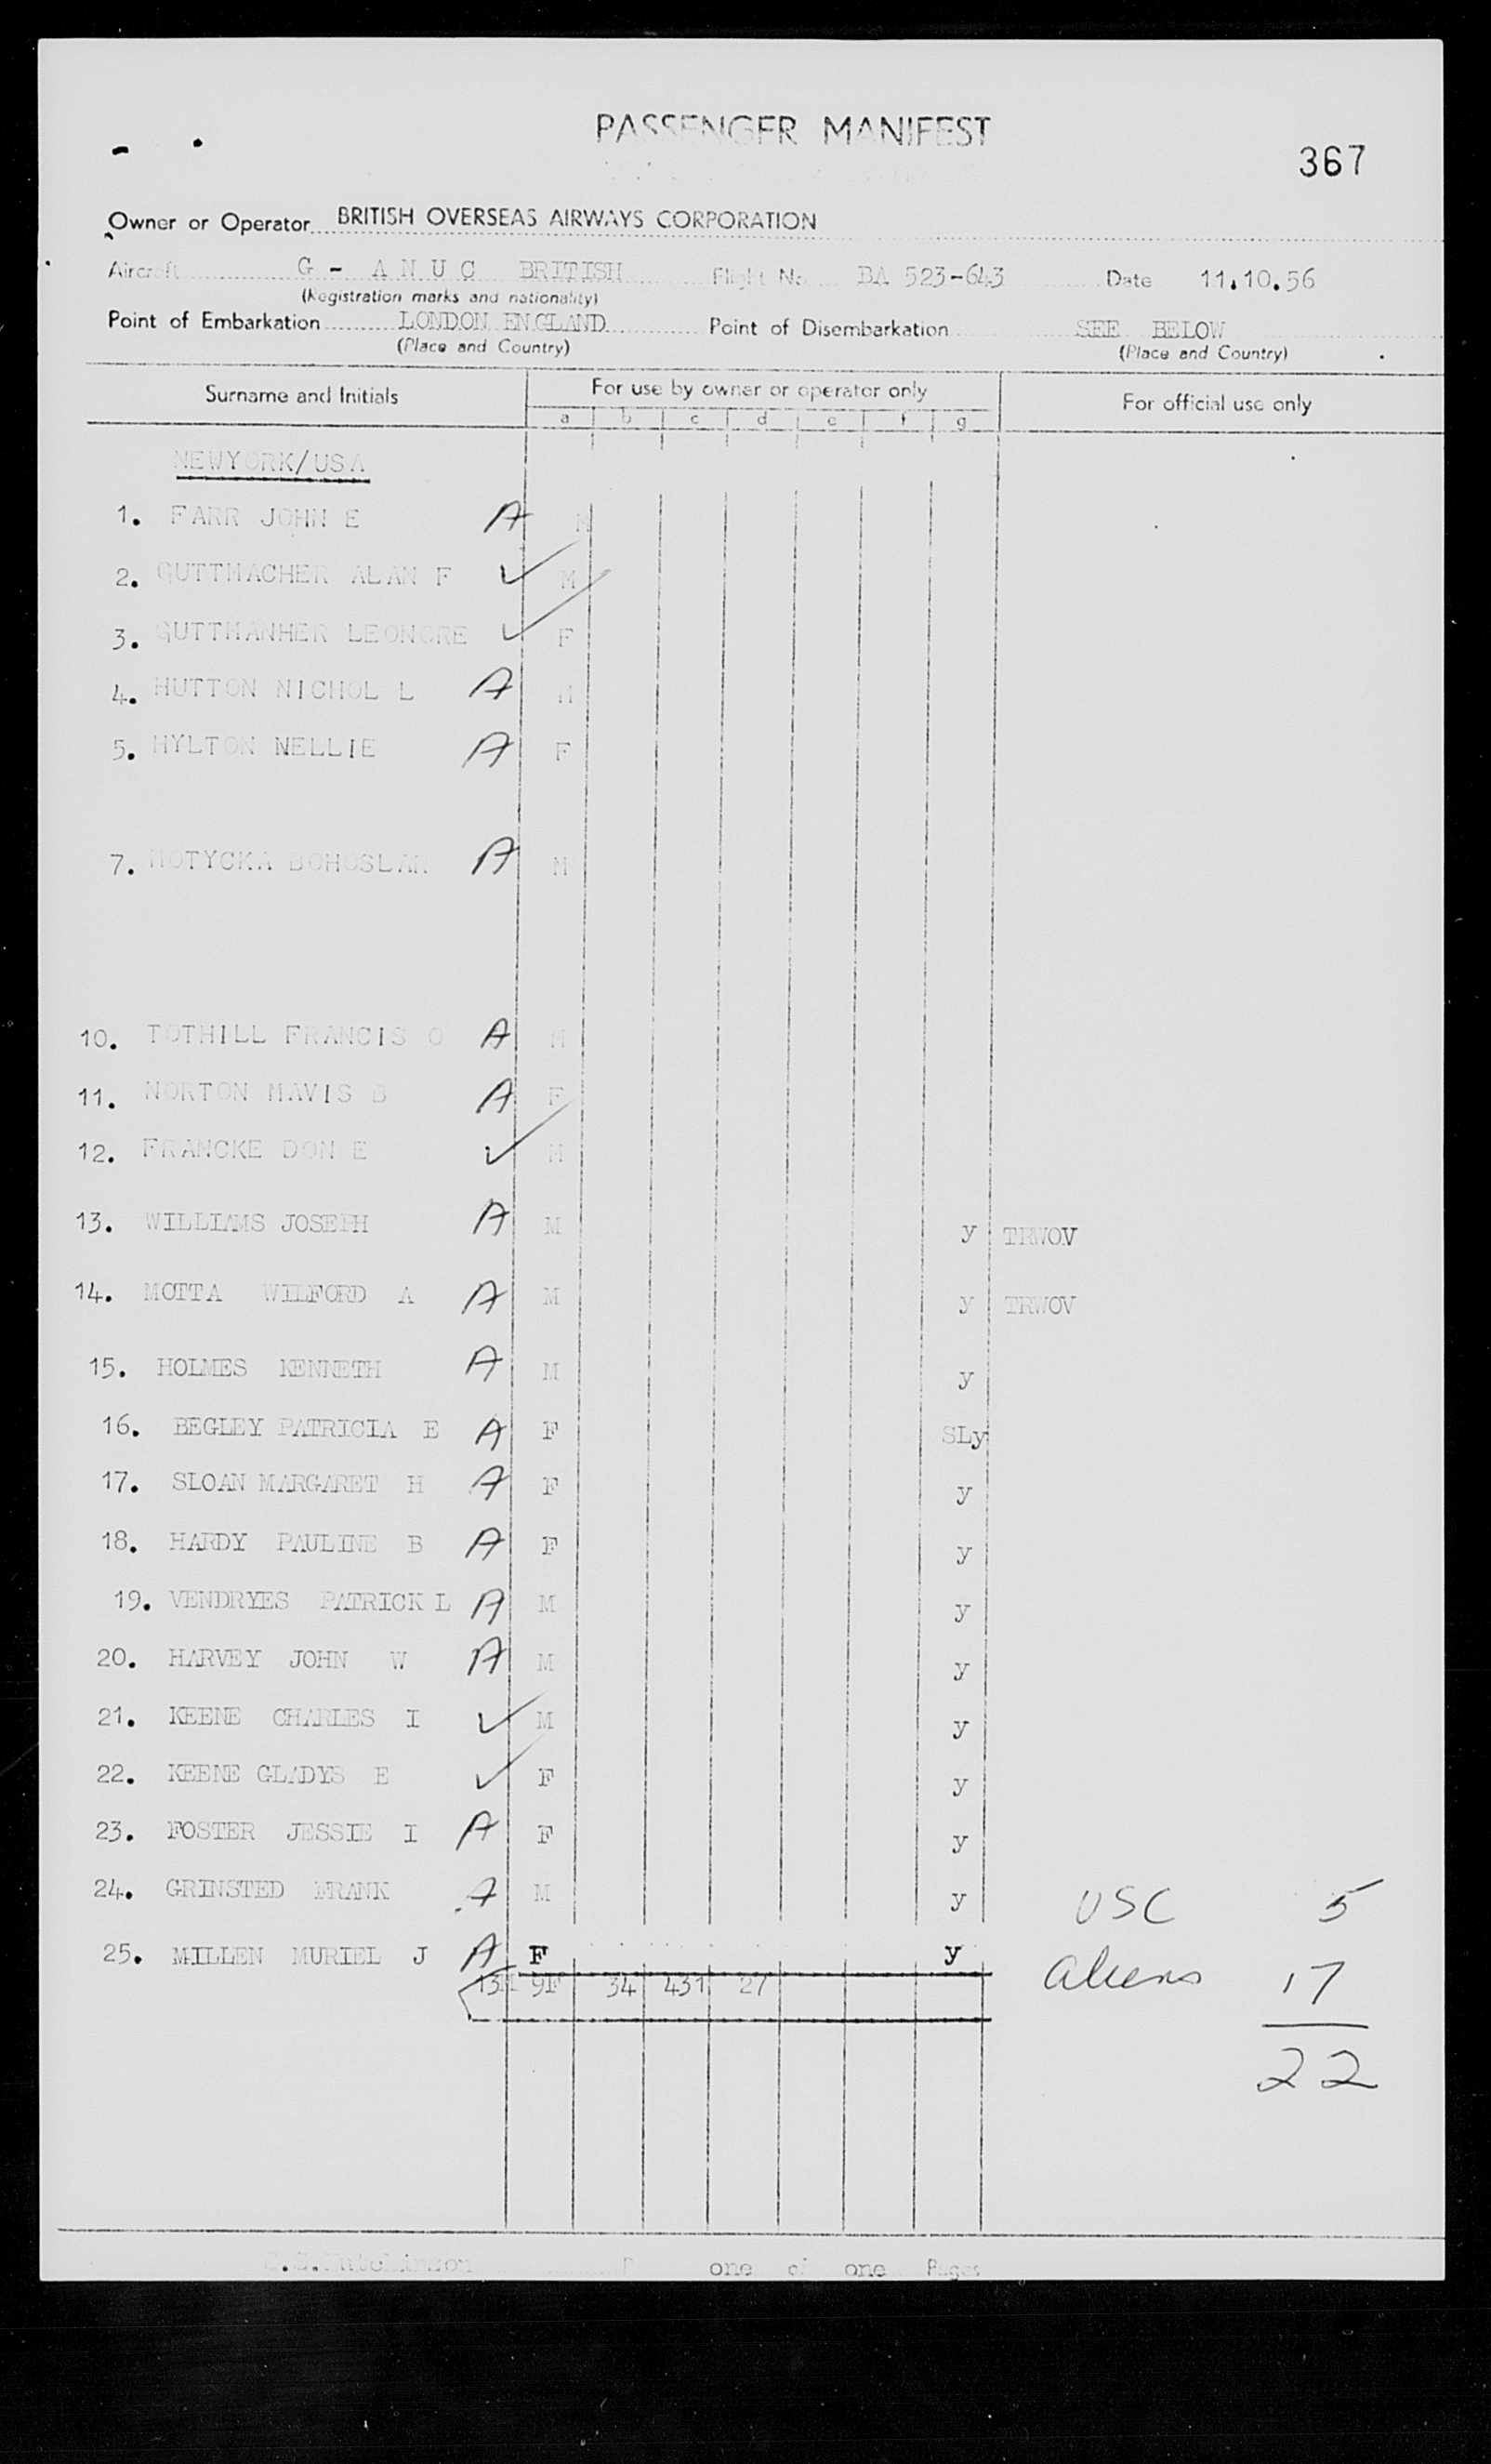 PASSENGER MANIFEST
367
Owner or Operator BRITISH OVERSEAS AIRWAYS CORPORATION
Aircraft G - A N U C BRITISH Flight No BA 523-643 Date 11.10.56
(Registration marks and nationality)
Point of Embarkation LONDON ENGLAND Point of Disembarkation SEE BELOW
(Place and Country) (Place and Country)
Surname and Initials For use by owner or operator only For official use only
a b c d e f g
NEWYORK/USA
1. FARR JOHN E A M
2. GUTTMACHER ALAN F ✓ M
3. GUTTMANHER LEONORE ✓ F
4. HUTTON NICHOL L A M
5. HYLTON NELLIE A F
7. MOTYCKA BOHOSLAK A M
10. TOTHILL FRANCIS O A M
11. NORTON MAVIS B A F
12. FRANCKE DON E ✓ M
13. WILLIAMS JOSEPH A M y TRWOV
14. MOTTA WILFORD A A M y TRWOV
15. HOLMES KENNETH A M y
16. BEGLEY PATRICIA E A F SLy
17. SLOAN MARGARET H A F y
18. HARDY PAULINE B A F y
19. VENDRYES PATRICK L A M y
20. HARVEY JOHN W A M y
21. KEENE CHARLES I ✓ M y
22. KEENE GLADYS E ✓ F y
23. FOSTER JESSIE I A F y
24. GRINSTED FRANK A M y
USC 5
25. MILLEN MURIEL J A F y
aliens 17
13M 9F 34 431 27
22
one of one Pages